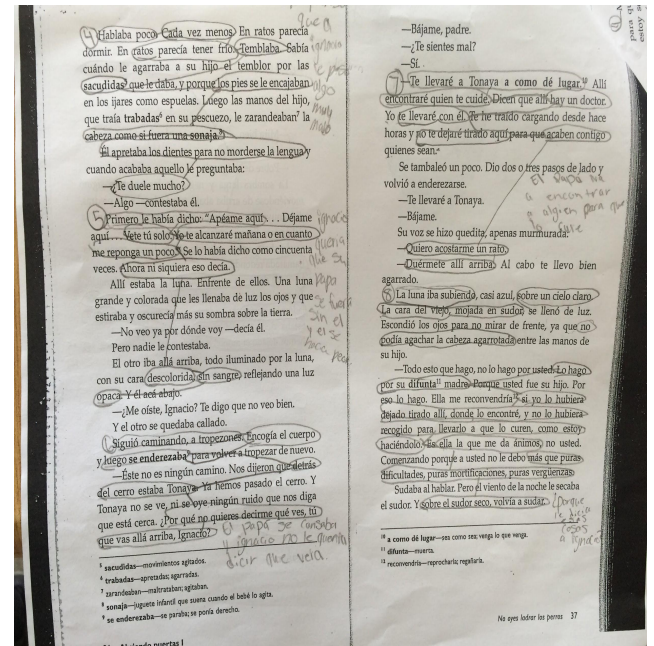 ④ Hablaba poco. Cada vez menos. En ratos parecía
dormir. En ratos parecía tener frío. Temblaba. Sabía
cuándo le agarraba a su hijo el temblor por las
sacudidas⁵ que le daba, y porque los pies se le encajaban
en los ijares como espuelas. Luego las manos del hijo,
que traía trabadas⁶ en su pescuezo, le zarandeaban⁷ la
cabeza como si fuera una sonaja.⁸
Él apretaba los dientes para no morderse la lengua y
cuando acababa aquello le preguntaba:
—¿Te duele mucho?
—Algo —contestaba él.
⑤ Primero le había dicho: "Apéame aquí . . . Déjame
aquí . . . Vete tú solo. Yo te alcanzaré mañana o en cuanto
me reponga un poco." Se lo había dicho como cincuenta
veces. Ahora ni siquiera eso decía.
Allí estaba la luna. Enfrente de ellos. Una luna
grande y colorada que les llenaba de luz los ojos y que
estiraba y oscurecía más su sombra sobre la tierra.
—No veo ya por dónde voy —decía él.
Pero nadie le contestaba.
El otro iba allá arriba, todo iluminado por la luna,
con su cara descolorida, sin sangre, reflejando una luz
opaca. Y él acá abajo.
—¿Me oíste, Ignacio? Te digo que no veo bien.
Y el otro se quedaba callado.
Siguió caminando, a tropezones. Encogía el cuerpo
y luego se enderezaba⁹ para volver a tropezar de nuevo.
—Éste no es ningún camino. Nos dijeron que detrás
del cerro estaba Tonaya. Ya hemos pasado el cerro. Y
Tonaya no se ve, ni se oye ningún ruido que nos diga
que está cerca. ¿Por qué no quieres decirme qué ves, tú
que vas allá arriba, Ignacio?
que a
ignacio
le
algo
muy
malo
ignacio
queria
que su
papa
se fuera
sin el
y el se
El papa se cansaba
y ignacio no le queria
dicir que veia.
⁵ sacudidas—movimientos agitados.
⁶ trabadas—apretadas; agarradas.
⁷ zarandeaban—maltrataban; agitaban.
⁸ sonaja—juguete infantil que suena cuando el bebé lo agita.
⁹ se enderezaba—se paraba; se ponía derecho.
puertas I
—Bájame, padre.
—¿Te sientes mal?
—Sí.
⑦ —Te llevaré a Tonaya a como dé lugar.¹⁰ Allí
encontraré quien te cuide. Dicen que allí hay un doctor.
Yo te llevaré con él. Te he traído cargando desde hace
horas y no te dejaré tirado aquí para que acaben contigo
quienes sean.
Se tambaleó un poco. Dio dos o tres pasos de lado y
volvió a enderezarse.
—Te llevaré a Tonaya.
—Bájame.
Su voz se hizo quedita, apenas murmurada:
—Quiero acostarme un rato.
—Duérmete allí arriba. Al cabo te llevo bien
agarrado.
El papa va
a encontrar
a algien para que
lo cure
⑧ La luna iba subiendo, casi azul, sobre un cielo claro.
La cara del viejo, mojada en sudor, se llenó de luz.
Escondió los ojos para no mirar de frente, ya que no
podía agachar la cabeza agarrotada entre las manos de
su hijo.
—Todo esto que hago, no lo hago por usted. Lo hago
por su difunta¹¹ madre. Porque usted fue su hijo. Por
eso lo hago. Ella me reconvendría¹² si yo lo hubiera
dejado tirado allí, donde lo encontré, y no lo hubiera
recogido para llevarlo a que lo curen, como estoy
haciéndolo. Es ella la que me da ánimos, no usted.
Comenzando porque a usted no le debo más que puras
dificultades, puras mortificaciones, puras vergüenzas.
Sudaba al hablar. Pero el viento de la noche le secaba
el sudor. Y sobre el sudor seco, volvía a sudar.
¿porque
le dicia
esas
cosas
a ignacio
¹⁰ a como dé lugar—sea como sea; venga lo que venga.
¹¹ difunta—muerta.
¹² reconvendría—reprocharía; regañaría.
No oyes ladrar los perros 37